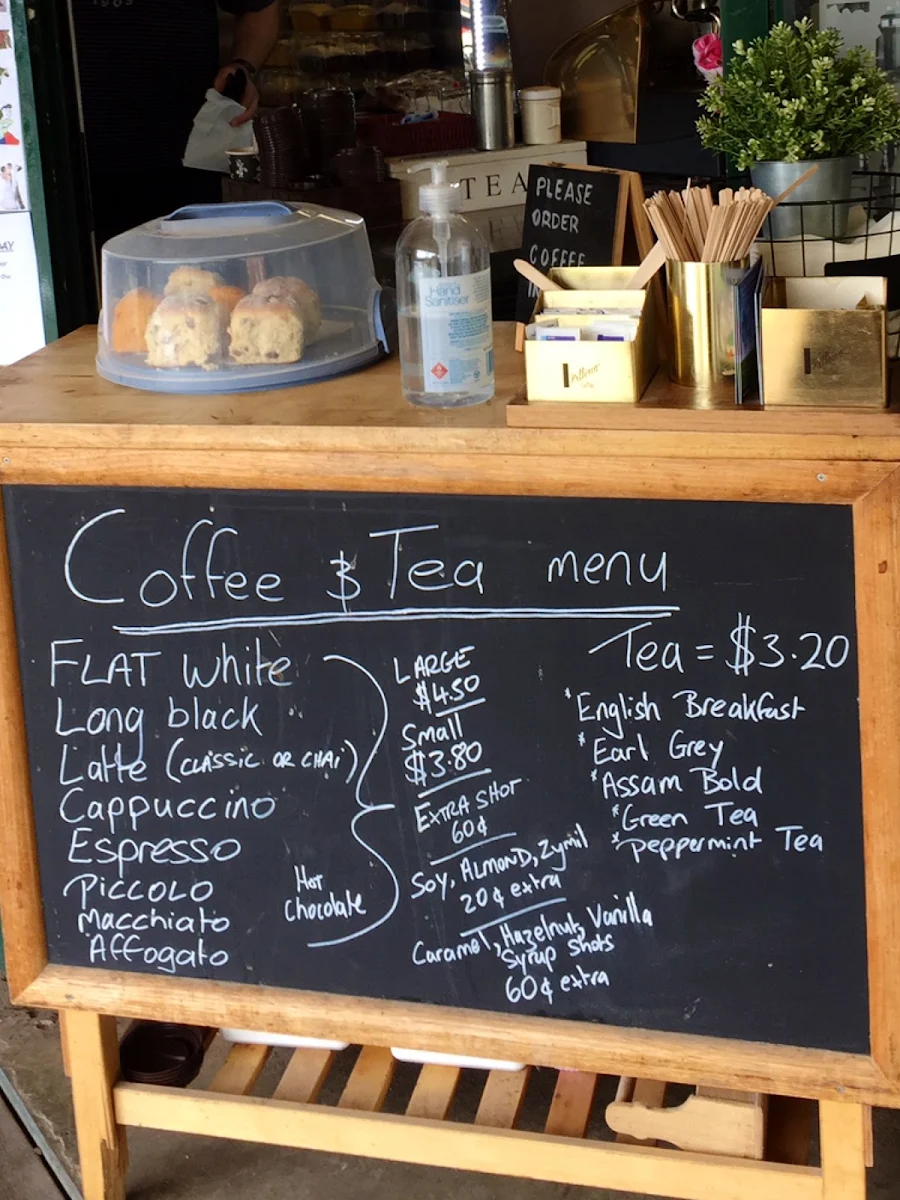 TEA
PLEASE
ORDER
COFFEE
Hand
Sanitiser
Coffee & Tea menu
FLAT white
Long black
Latte (CLASSIC OR CHAI)
Cappuccino
Espresso
Piccolo
Macchiato
Affogato
Hot
Chocolate
LARGE
$4.50
Small
$3.80
EXTRA SHOT
60¢
Soy, ALMOND, Zymil
20¢ extra
Caramel, Hazelnut, Vanilla
Syrup Shots
60¢ extra
Tea = $3.20
*English Breakfast
*Earl Grey
*Assam Bold
*Green Tea
*Peppermint Tea